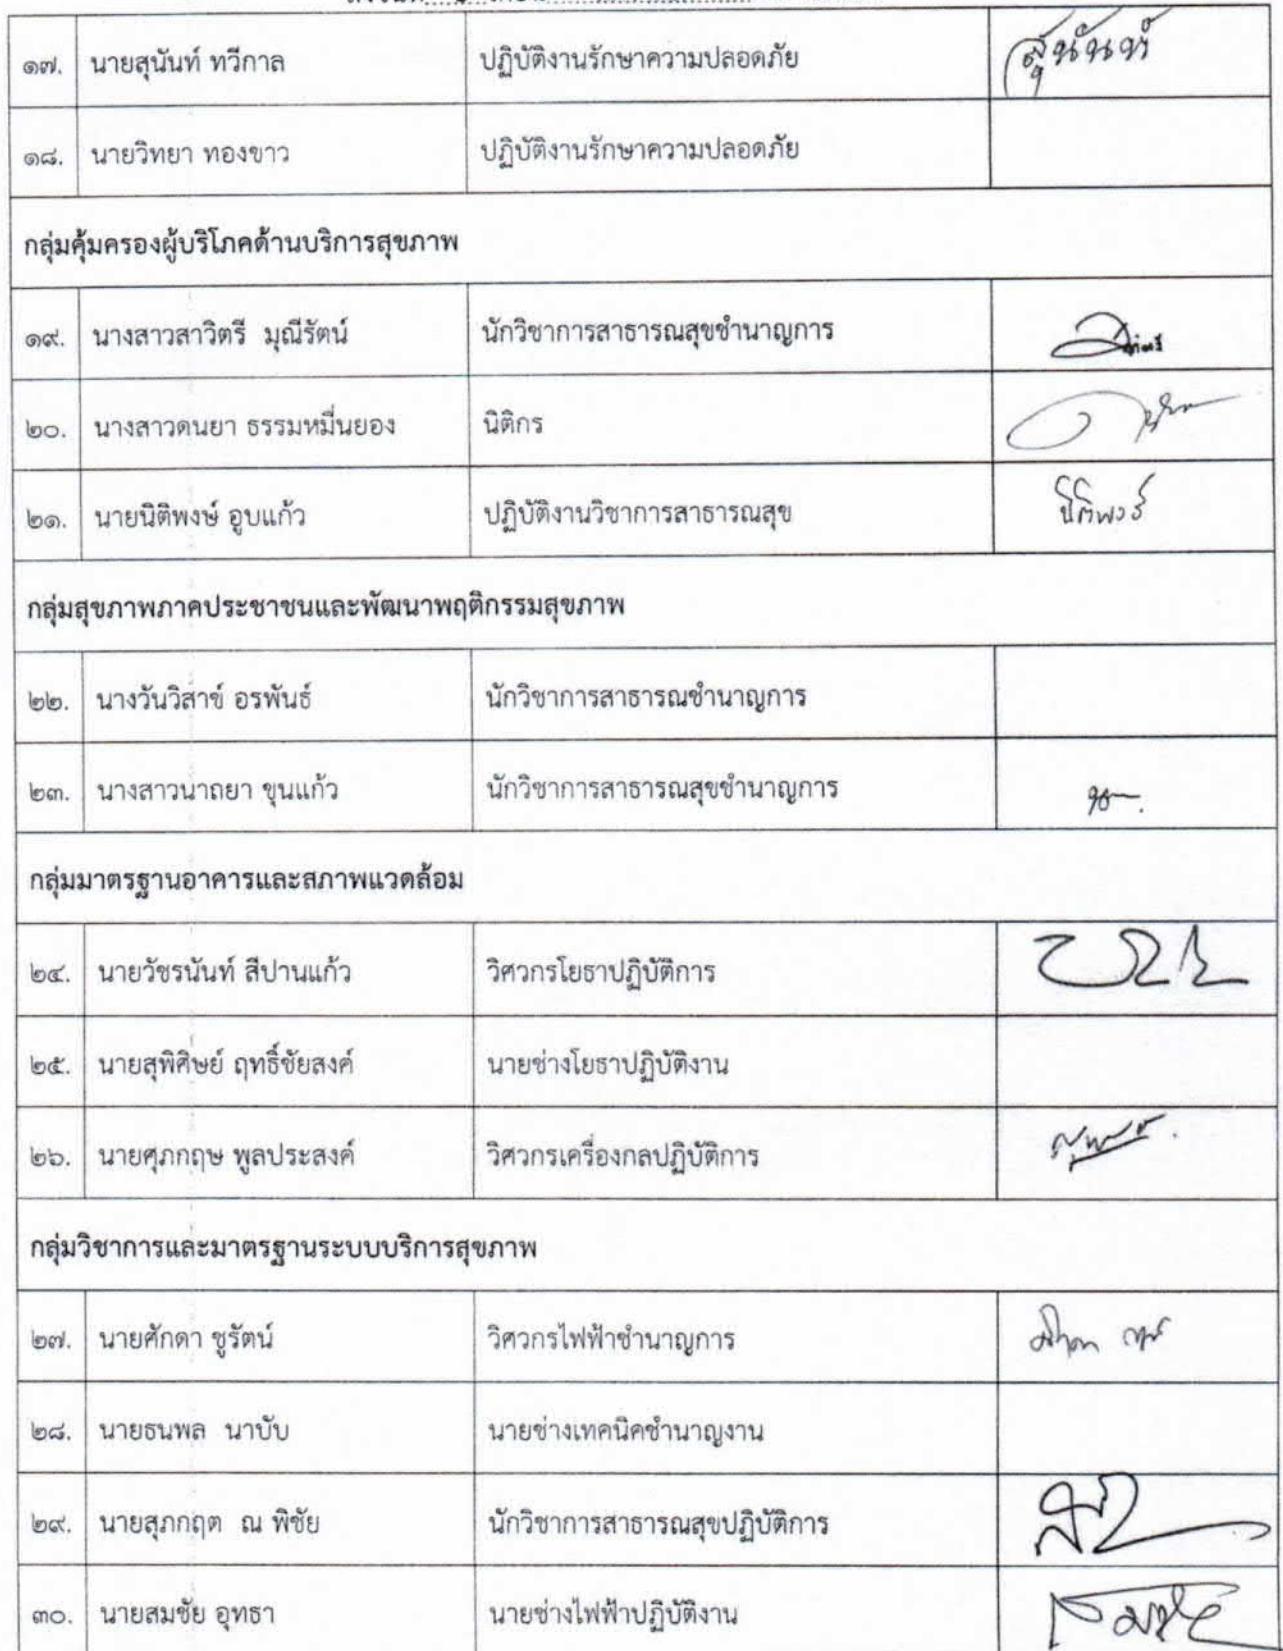 ๑๗. นายสุนันท์ ทวีกาล ปฏิบัติงานรักษาความปลอดภัย สุนันท์
๑๘. นายวิทยา ทองขาว ปฏิบัติงานรักษาความปลอดภัย
กลุ่มคุ้มครองผู้บริโภคด้านบริการสุขภาพ
๑๙. นางสาวสาวิตรี มุณีรัตน์ นักวิชาการสาธารณสุขชำนาญการ
๒๐. นางสาวดนยา ธรรมหมื่นยอง นิติกร
๒๑. นายนิติพงษ์ อูบแก้ว ปฏิบัติงานวิชาการสาธารณสุข นิติพงษ์
กลุ่มสุขภาพภาคประชาชนและพัฒนาพฤติกรรมสุขภาพ
๒๒. นางวันวิสาข์ อรพันธ์ นักวิชาการสาธารณชำนาญการ
๒๓. นางสาวนาถยา ขุนแก้ว นักวิชาการสาธารณสุขชำนาญการ
กลุ่มมาตรฐานอาคารและสภาพแวดล้อม
๒๔. นายวัชรนันท์ สีปานแก้ว วิศวกรโยธาปฏิบัติการ
๒๕. นายสุพิศิษย์ ฤทธิ์ชัยสงค์ นายช่างโยธาปฏิบัติงาน
๒๖. นายศุภกฤษ พูลประสงค์ วิศวกรเครื่องกลปฏิบัติการ
กลุ่มวิชาการและมาตรฐานระบบบริการสุขภาพ
๒๗. นายศักดา ชูรัตน์ วิศวกรไฟฟ้าชำนาญการ
๒๘. นายธนพล นาบับ นายช่างเทคนิคชำนาญงาน
๒๙. นายสุภกฤต ณ พิชัย นักวิชาการสาธารณสุขปฏิบัติการ
๓๐. นายสมชัย อุทธา นายช่างไฟฟ้าปฏิบัติงาน